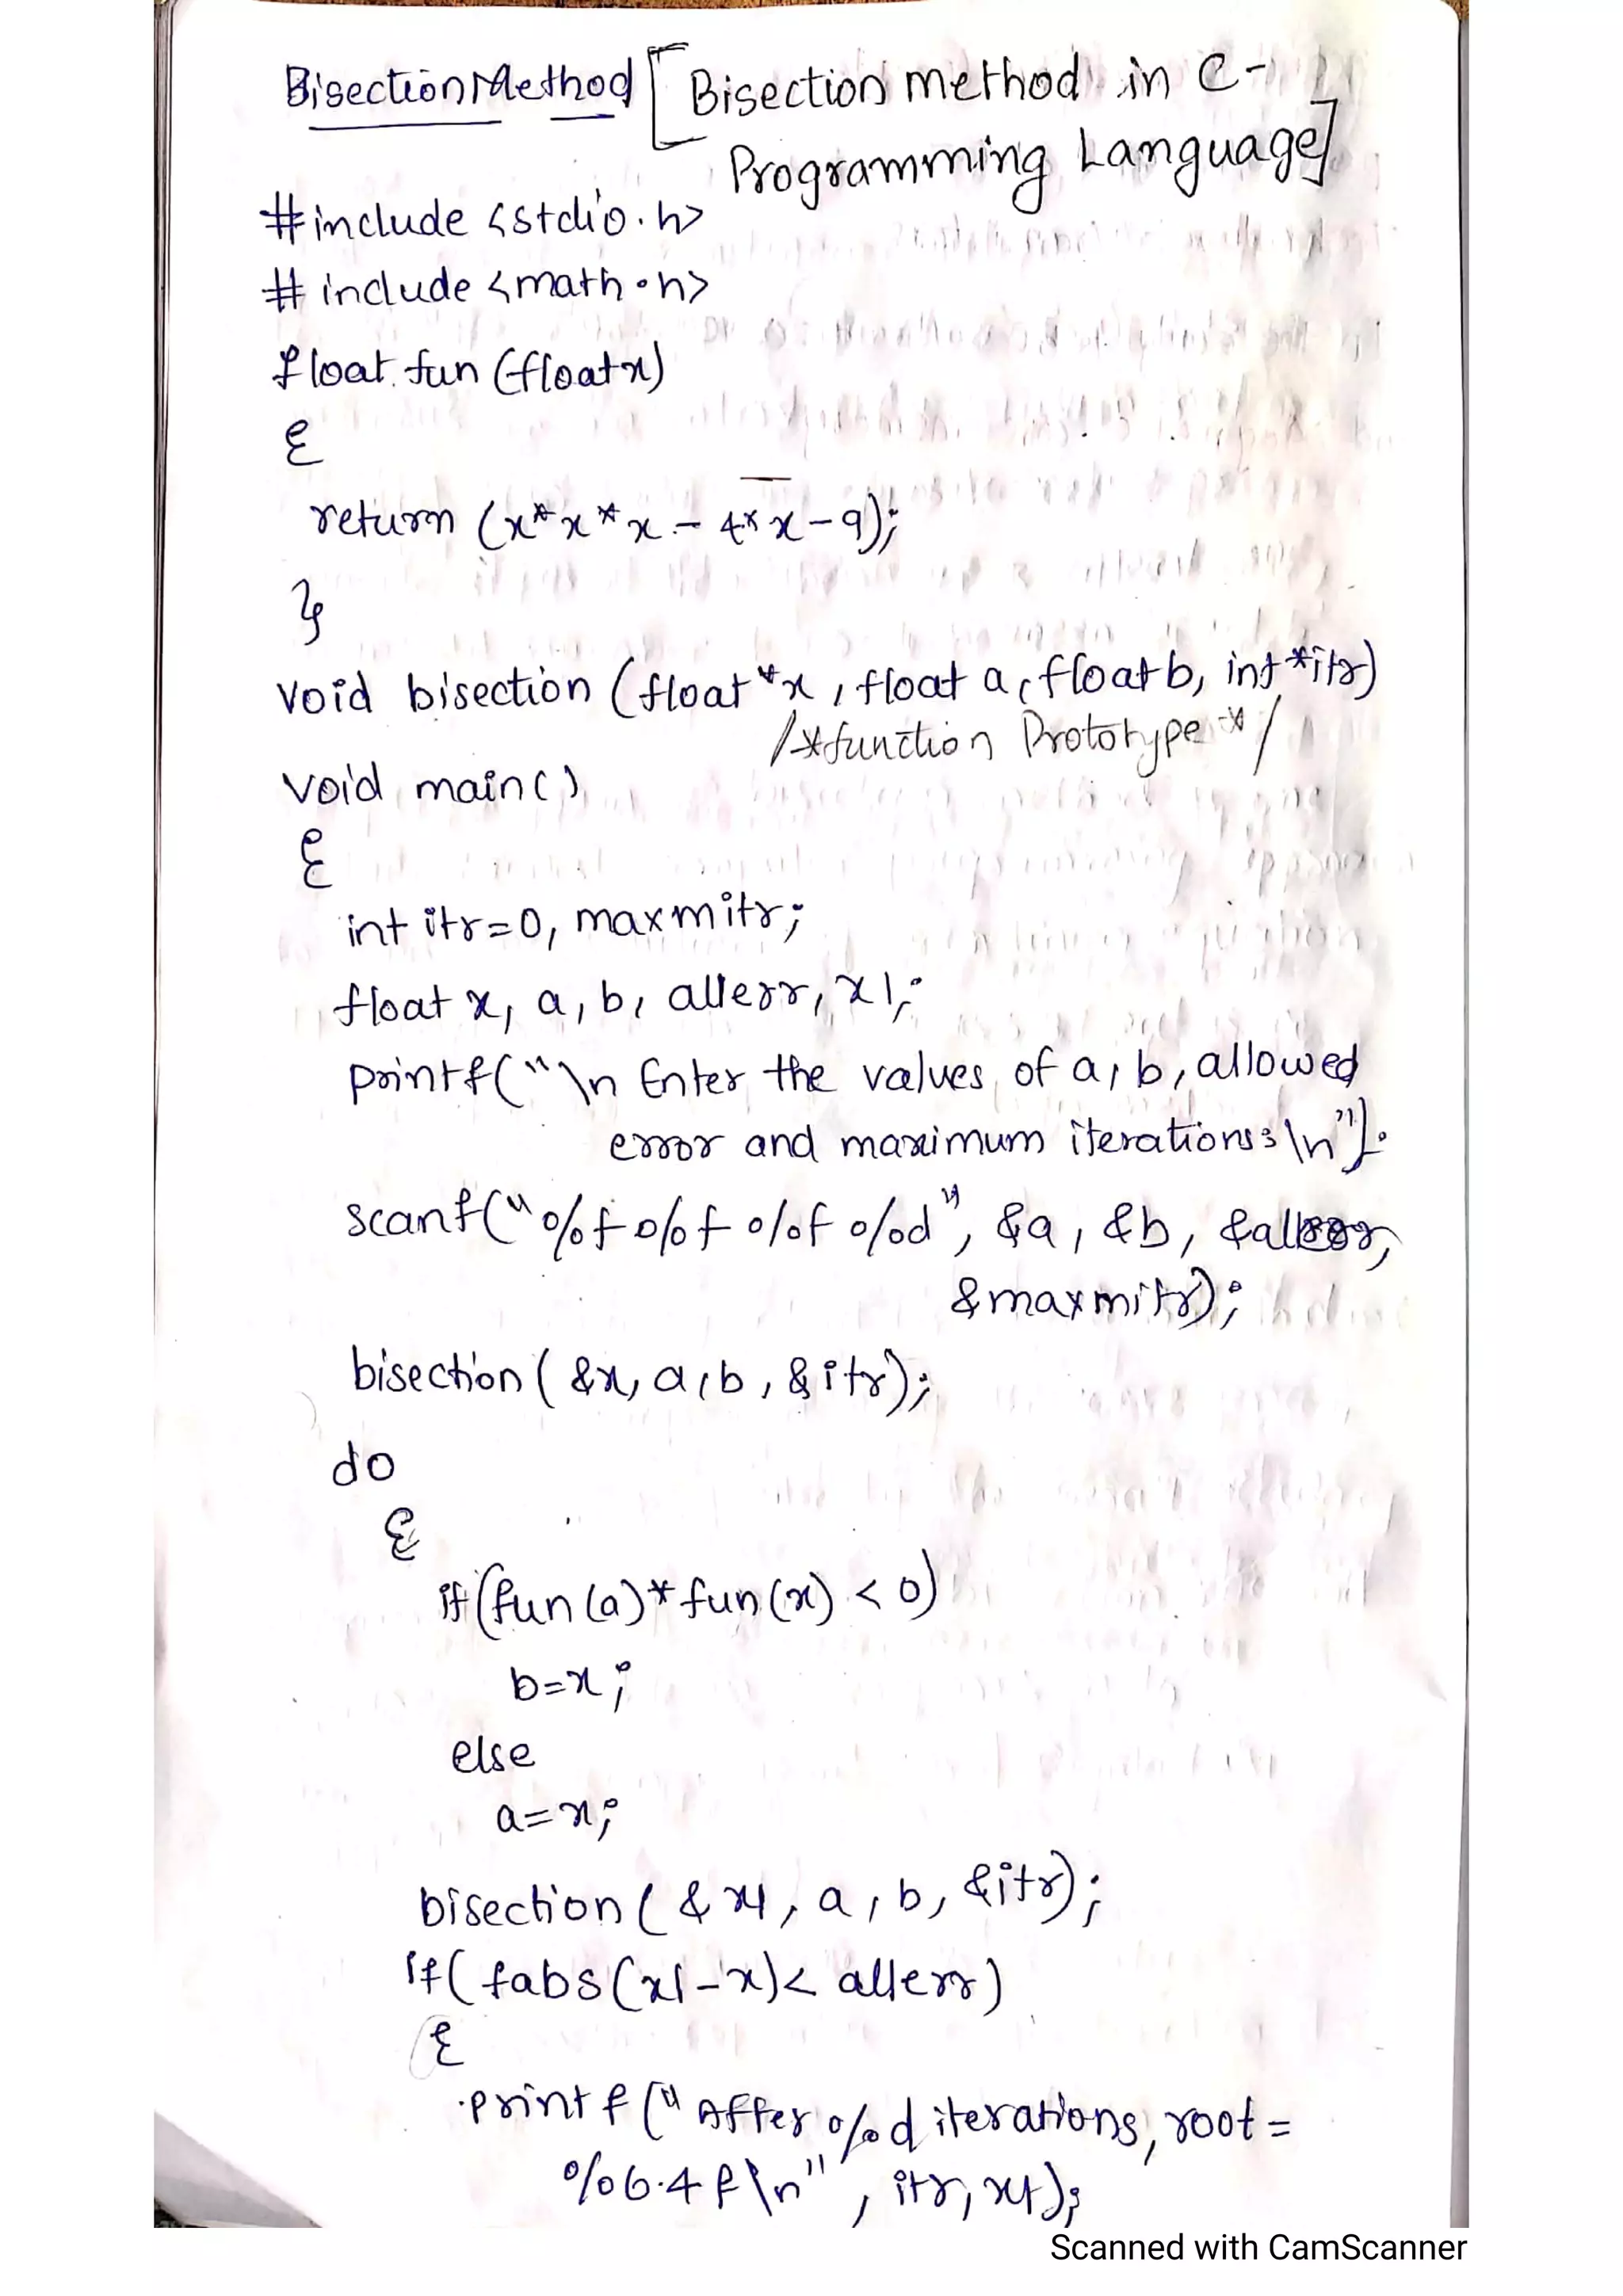 Bisection Method [Bisection method in C-
Programming Language]
#include <stdio.h>
# include <math.h>
float fun (float x)
{
return (x*x*x - 4*x-9);
}
void bisection (float *x, float a, float b, int *itr)
/*function Prototype*/
void main()
{
int itr=0, maxmitr;
float x, a, b, allerr, x1;
printf("\n Enter the values of a, b, allowed
error and maximum iterations:\n");
scanf("%f %f %f %d", &a, &b, &allerr,
&maxmitr);
bisection (&x, a, b, &itr);
do
{
if (fun (a)*fun (x) < 0)
b=x;
else
a=x;
bisection (&x1, a, b, &itr);
if( fabs(x1-x)< allerr)
{
printf ("After %d iterations, root =
%6.4f\n", itr, x1);
Scanned with CamScanner